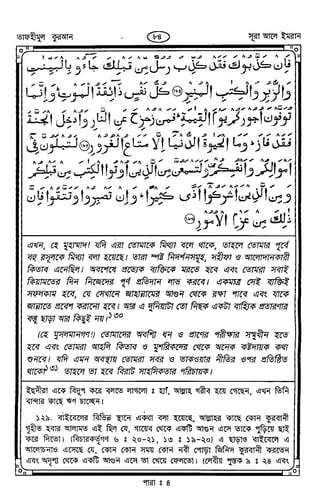 তাফহীমুল কুরআন
৮৪
সূরা আলে ইমরান
فَإِنْ كَذَّبُوكَ فَقَدْ كُذِّبَ رُسُلٌ مِّنْ قَبْلِكَ جَاءُو بِالْبَيِّنٰتِ
وَالزُّبُرِ وَالْكِتٰبِ الْمُنِيرِ ۝ كُلُّ نَفْسٍ ذَائِقَةُ الْمَوْتِ وَإِنَّمَا
تُوَفَّوْنَ أُجُورَكُمْ يَوْمَ الْقِيٰمَةِ فَمَنْ زُحْزِحَ عَنِ النَّارِ وَأُدْخِلَ الْجَنَّةَ
فَقَدْ فَازَ وَمَا الْحَيٰوةُ الدُّنْيَا إِلَّا مَتَاعُ الْغُرُورِ ۝ لَتُبْلَوُنَّ فِي
أَمْوَالِكُمْ وَأَنْفُسِكُمْ وَلَتَسْمَعُنَّ مِنَ الَّذِينَ أُوتُوا الْكِتٰبَ مِنْ قَبْلِكُمْ
وَمِنَ الَّذِينَ أَشْرَكُوا أَذًى كَثِيرًا وَإِنْ تَصْبِرُوا وَتَتَّقُوا فَإِنَّ
ذٰلِكَ مِنْ عَزْمِ الْأُمُورِ ۝
এখন, হে মুহাম্মাদ! যদি এরা তোমাকে মিথ্যা বলে থাকে, তাহলে তোমার পূর্বে
বহু রসূলকে মিথ্যা বলা হয়েছে। তারা স্পষ্ট নিদর্শনসমূহ, সহীফা ও আলোদানকারী
কিতাব এনেছিল। অবশেষে প্রত্যেক ব্যক্তিকে মরতে হবে এবং তোমরা সবাই
কিয়ামতের দিন নিজেদের পূর্ণ প্রতিদান লাভ করবে। একমাত্র সেই ব্যক্তিই
সফলকাম হবে, যে সেখানে জাহান্নামের আগুন থেকে রক্ষা পাবে এবং যাকে
জান্নাতে প্রবেশ করানো হবে। আর এ দুনিয়াটা তো নিছক একটা বাহ্যিক প্রতারণার
বস্তু ছাড়া আর কিছুই নয়।১৩০
(হে মুসলমানগণ!) তোমাদের অবশ্যি ধন ও প্রাণের পরীক্ষার সম্মুখীন হতে
হবে এবং তোমরা আহলি কিতাব ও মুশরিকদের থেকে অনেক কষ্টদায়ক কথা
শুনবে। যদি এমন অবস্থায় তোমরা সবর ও তাকওয়ার নীতির ওপর প্রতিষ্ঠিত
থাকো১৩১ তাহলে তা হবে বিরাট সাহসিকতার পরিচায়ক।
ইহুদীরা একে বিদ্রূপ করে বলতে লাগলো : হ্যাঁ, আল্লাহ গরীব হয়ে গেছেন, এখন তিনি
বান্দার কাছে ঋণ চাচ্ছেন।
১২৯. বাইবেলের বিভিন্ন স্থানে একথা বলা হয়েছে, আল্লাহর কাছে কোন কুরবানী
গৃহীত হবার আলামত এই ছিল যে, গায়েব থেকে একটি আগুন এসে তাকে পুড়িয়ে ছাই
করে দিতো। (বিচারকর্তৃগণ ৬ : ২০-২১, ১৩ : ১৯-২০) এ ছাড়াও বাইবেলে এ
আলোচনাও এসেছে যে, কোন কোন সময় কোন নবী পোড়া জিনিস কুরবানী করতেন
এবং অদৃশ্য থেকে একটি আগুন এসে তা খেয়ে ফেলতো। (লেবীয় পুস্তক ৯ : ২৪ এবং
পারা : ৪